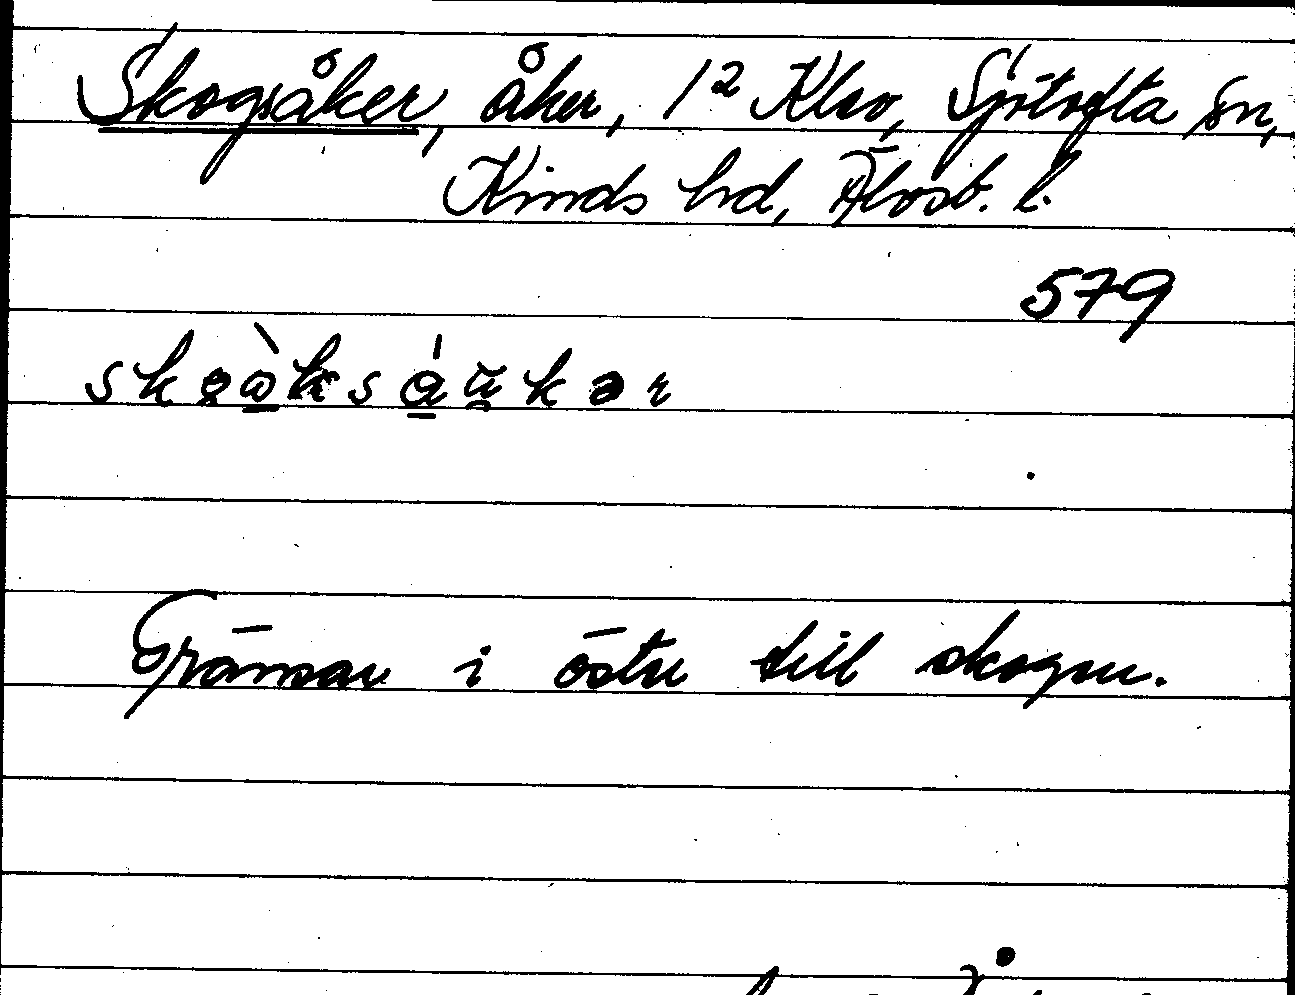 Skogsåker, åker, 1² Klev, Sjötofta sn,
Kinds hd, Älvsb. l.
579
Gränsar i öster till skogen.